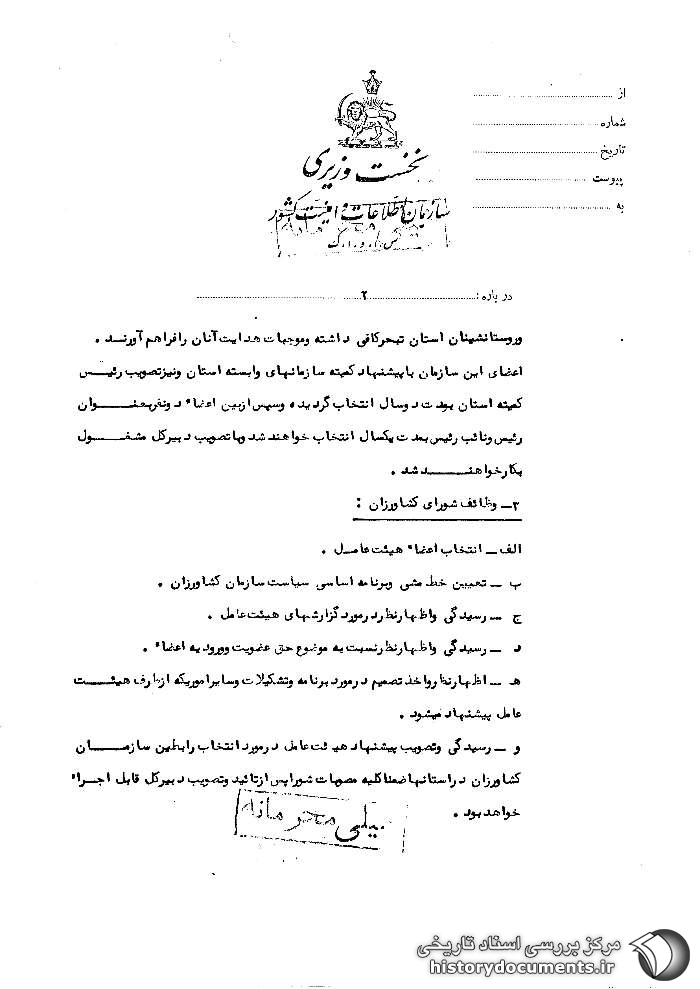 از
شماره
تاریخ
پیوست
به
نخست وزیری
سازمان اطلاعات و امنیت کشور
در باره : ۲
وروستانشینان استان تبحرکافی داشته وموجبات هدایت آنان رافراهم آورنـد .
اعضای این سازمان باپیشنهاد کمیته سازمانهای وابسته استان ونیزتصویب رئیـس
کمیته استان بمدت دوسال انتخاب گردیده وسپس ازبین اعضاء دونفربعنـوان
رئیس ونائب رئیس بمدت یکسال انتخاب خواهند شد وباتصویب دبیرکل مشغـول
بکارخواهنـد شد .
۳ــ وظائف شورای کشاورزان :
الف ــ انتخاب اعضاء هیئت عامـل .
ب ــ تعیین خط مشی وبرنامه اساسی سیاست سازمان کشاورزان .
ج ــ رسیدگی واظهارنظردرمورد گزارشهای هیئت عامل .
د ــ رسیدگی واظهارنظرنسبت به موضوع حق عضویت وورودیه اعضاء .
هـ ــ اظهارنظرواخذ تصمیم درمورد برنامه وتشکیلات وسایراموریکه ازطرف هیئـت
عامل پیشنهاد میشود .
و ــ رسیدگی وتصویب پیشنهاد هیئت عامل درمورد انتخاب رابطین سازمـان
کشاورزان دراستانهاضمناکلیه مصوبات شوراپس ازتائید وتصویب دبیرکل قابل اجراء
خواهد بود .
خیلی محرمانه
مرکز بررسی اسناد تاریخی
historydocuments.ir